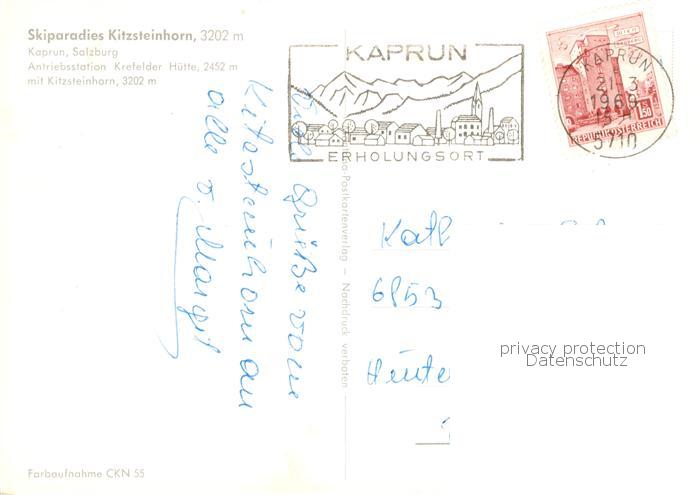 Skiparadies Kitzsteinhorn, 3202 m
Kaprun, Salzburg
Antriebsstation Krefelder Hütte, 2452 m
mit Kitzsteinhorn, 3202 m
KAPRUN
ERHOLUNGSORT
KAPRUN
21. 3
1969
5710
1.50
REPUBLIK ÖSTERREICH
Viele Grüße vom
Kitzsteinhorn an
alle v. Margit
Postkartenverlag — Nachdruck verboten
Kath
6853
privacy protection
Datenschutz
Farbaufnahme CKN 55